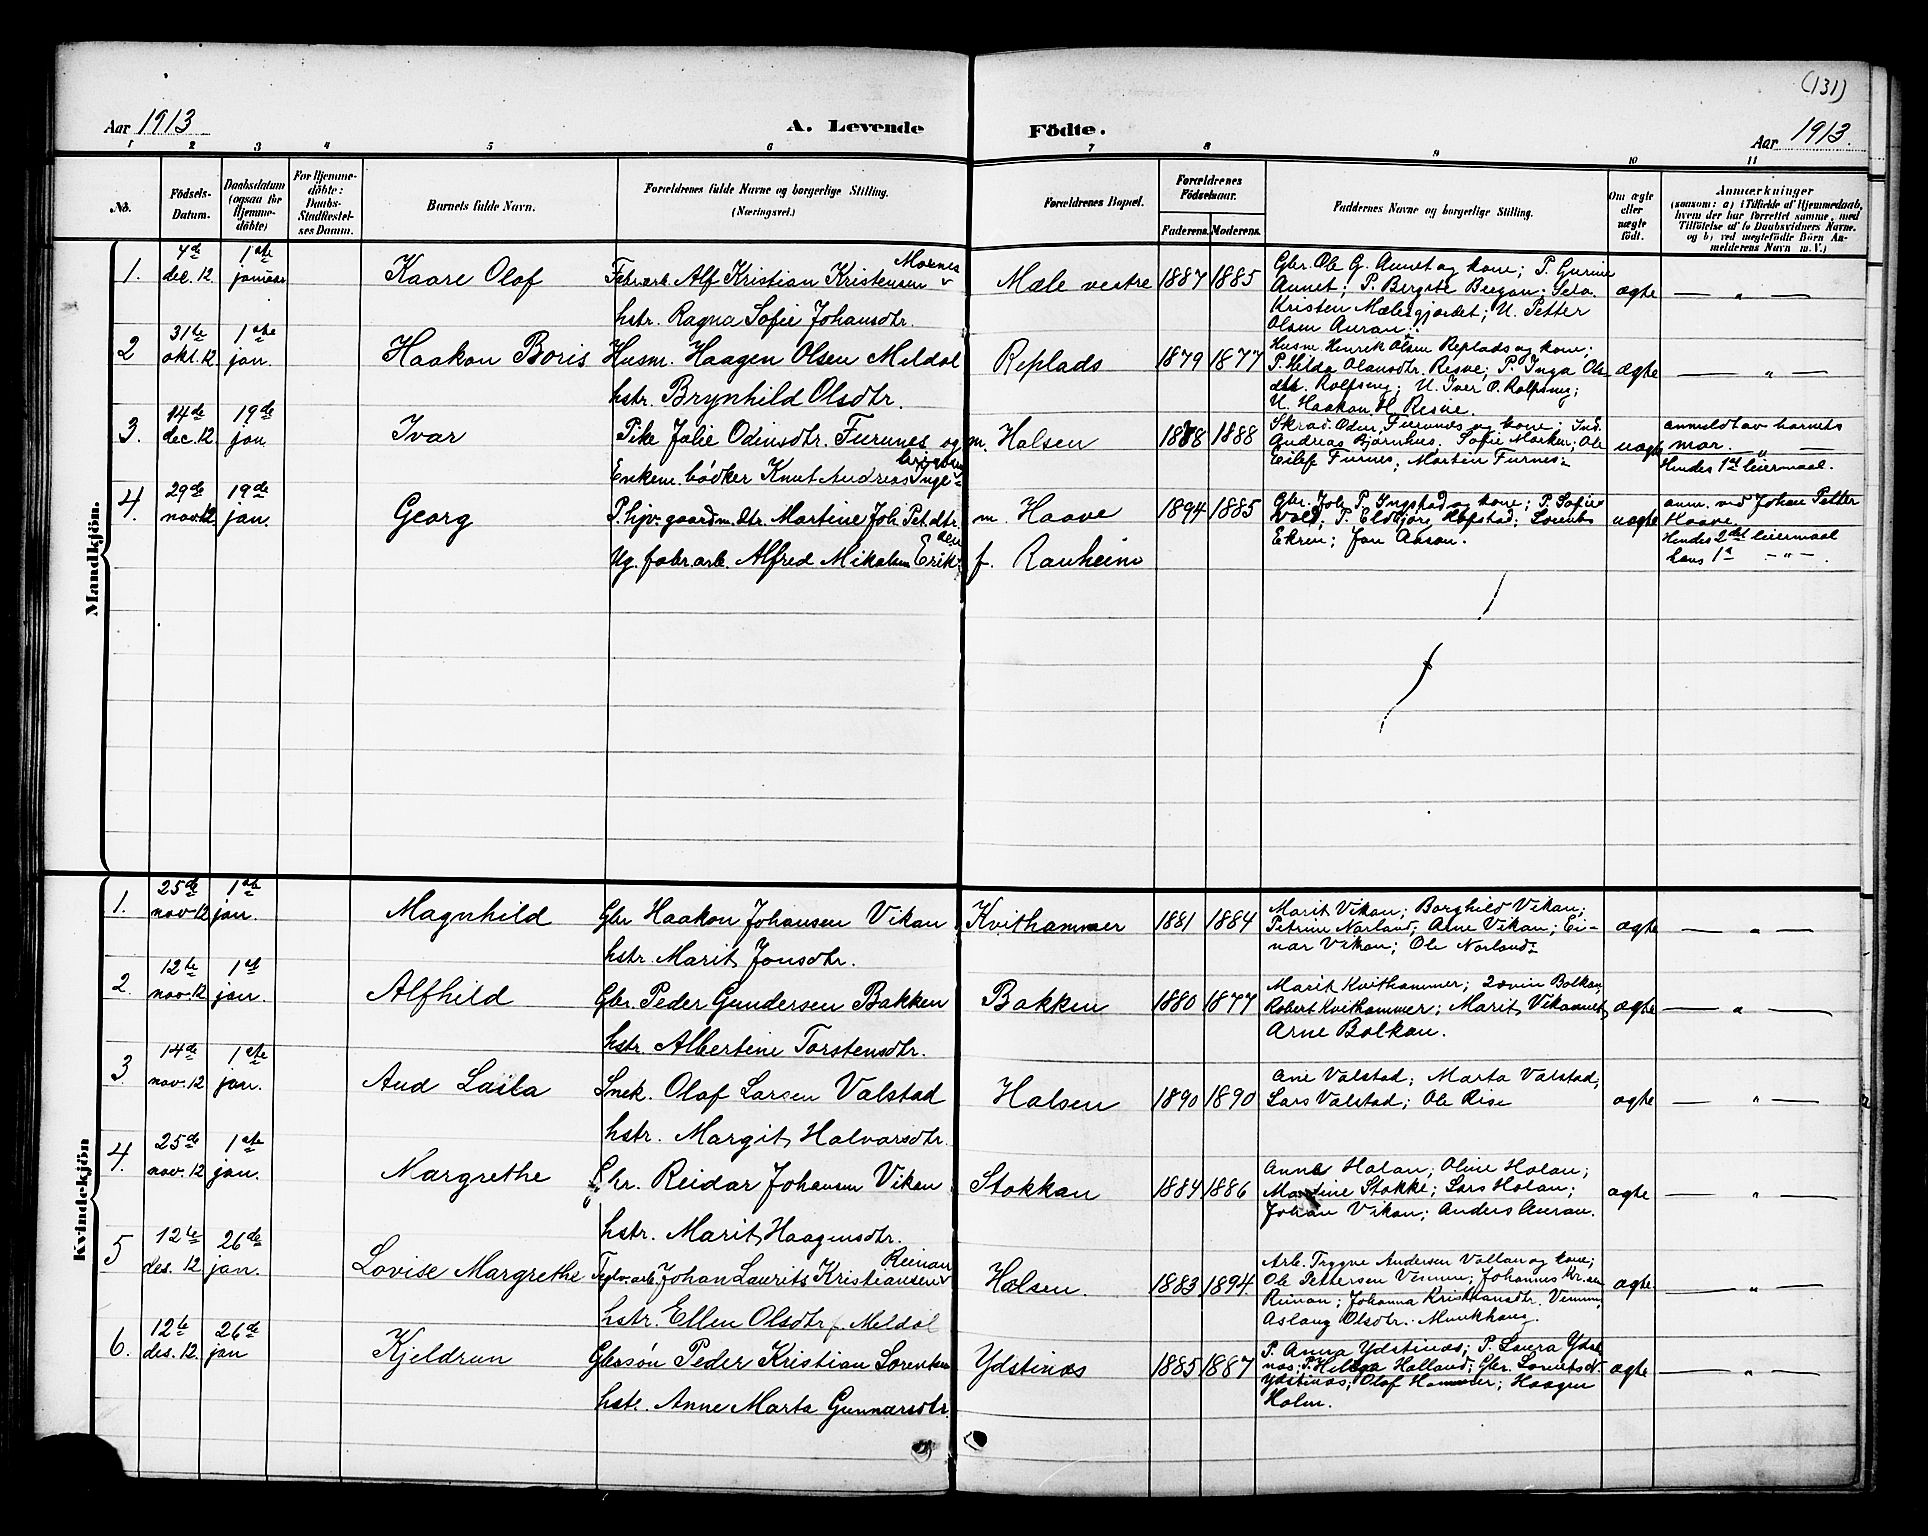 (131)
Aar 1913
A. Levende Födte.
Aar 1913.
1 2 3 4 5 6 7 8 9 10 11
No.
Födsels-Datum.
Daabsdatum (ogsaa för Hjemmedöbte)
For Hjemmedöbte: Daabs-Stadfæstelses Datum.
Barnets fulde Navn.
Forældrenes fulde Navne og borgerlige Stilling. (Næringsvei.)
Forældrenes Bopæl.
Forældrenes Födselsaar.
Faderens. Moderens.
Faddernes Navne og borgerlige Stilling.
Om ægte eller uægte födt.
Anmærkninger
(saasom: a) i Tilfælde af Hjemmedaab,
hvem der har forrettet samme, med
Tilföielse af to Daabsvidners Navne.
og b) ved uægtefödte Börn An-
melderens Navn m. V.)
Mandkjön.
1. 4de dec. 12 1ste januar Kaare Olaf Fabr.arb. Alf Kristian Kristensen Moenes
hstr. Ragna Sofie Johansdtr.
Mæle vestre 1887 1885
Gbr. Ole G. Aunet og kone; P. Gurine
Aunet; P. Bergite Bergan;
Kristen Mælesgjerdet; U. Petter
Olsen Auran.
ægte — " —
2 31te okt. 12 1ste jan. Haakon Boris Husm. Haagen Olsen Meldal
hstr. Brynhild Olsdtr.
Replads 1879 1877
Husm. Henrik Olsen Replads og kone;
P. Hilda Olausdtr. Resve; P. Inga Ols-
dtr. Rolfseng; U. Iver O. Rolfseng;
U. Haakon H. Resve.
ægte — " —
3. 14de dec. 12 19de jan Ivar Pike Jolie Odinsdtr. Furunes og
Enkem. bödker Knut Andreas Inge-brigtsen
m. Halsen 1878 1888
Skræd. Oden Furunes og kone; Ind.
Andreas Bjørnhus. Sofie Marken; Ole
Eilef Furnes; Martin Furnes.
uægte
anmeldt av barnets
mor. — " —
Hendes 1ste leiermaal.
4. 29de nov. 12 19de jan. Georg P. hjv. gaardm. dtr. Martine Joh. Pet.dtr.
Ug. fabr.arb. Alfred Mikalsen Erik-
m. Haave
f. Ranheim
1894 1885
Gbr. Joh. P. Ingstad og kone; P. Sofie
Wold; P. Eldbjørg Hofstad; Lorents
Ekren; Jon Aasan.
uægte
anm. ved Johan Petter
Haave.
Hendes 2det leiermaal
hans 1ste — " —
Kvindekjön
1. 25de nov 12 1ste jan. Magnhild Gbr Haakon Johansen Vikan
hstr. Marit Jonsdtr.
Kvithammer 1881 1884
Marit Vikan; Borghild Vikan;
Petrine Norland; Arne Vikan; Ei-
nar Vikan; Ole Norland
ægte — " —
2. 12te nov. 12 1ste jan. Alfhild Gbr. Peder Gundersen Bakken
hstr. Albertine Torstensdtr.
Bakken 1880 1877
Marit Kvithammer; Lovin Bolkan,
Robert Kvithammer; Marit Vikannet,
Arne Bolkan.
ægte — " —
3. 14de nov. 12 1ste jan. Aud Laila Snek. Olaf Larsen Valstad
hstr. Margit Halvarsdtr.
Halsen 1890 1890
Ane Valstad; Marta Valstad;
Lars Valstad; Ole Rise
ægte — " —
4. 25de nov. 12 1ste jan. Margrethe Gbr. Reidar Johansen Vikan
hstr. Marit Haagensdtr.
Stokkan 1884 1886
Anna Holan; Oline Holan;
Martine Stokke; Lars Holan;
Johan Vikan; Anders Auran.
ægte — " —
5 12te des. 12 26de jan. Lovise Margrethe Teglv.arb. Johan Laurits Kristiansen Reinan
hstr. Ellen Olsdtr f. Meldal
Halsen. 1883 1894.
Arb. Trygve Andersen Vollan og kone;
Ole Pettersen Vinnen; Johannes Kr.sen
Reinan; Johanna Kristiansdtr. Vinnen,
Aslaug Olsdtr. Munkhaug.
ægte — " —
6. 12te des. 12 26de jan Kjeldrun Gbrssön Peder Kristian Lorentsen
hstr. Anne Marta Gunnarsdtr.
Ydstinæs 1885 1887
P. Anna Ydstinæs; P. Laura Ydsti-
næs; P. Helga Holland; Gbr. Lorents N.
Ydstinæs; Olaf Hammer; Haagen
Holm.
ægte — " —